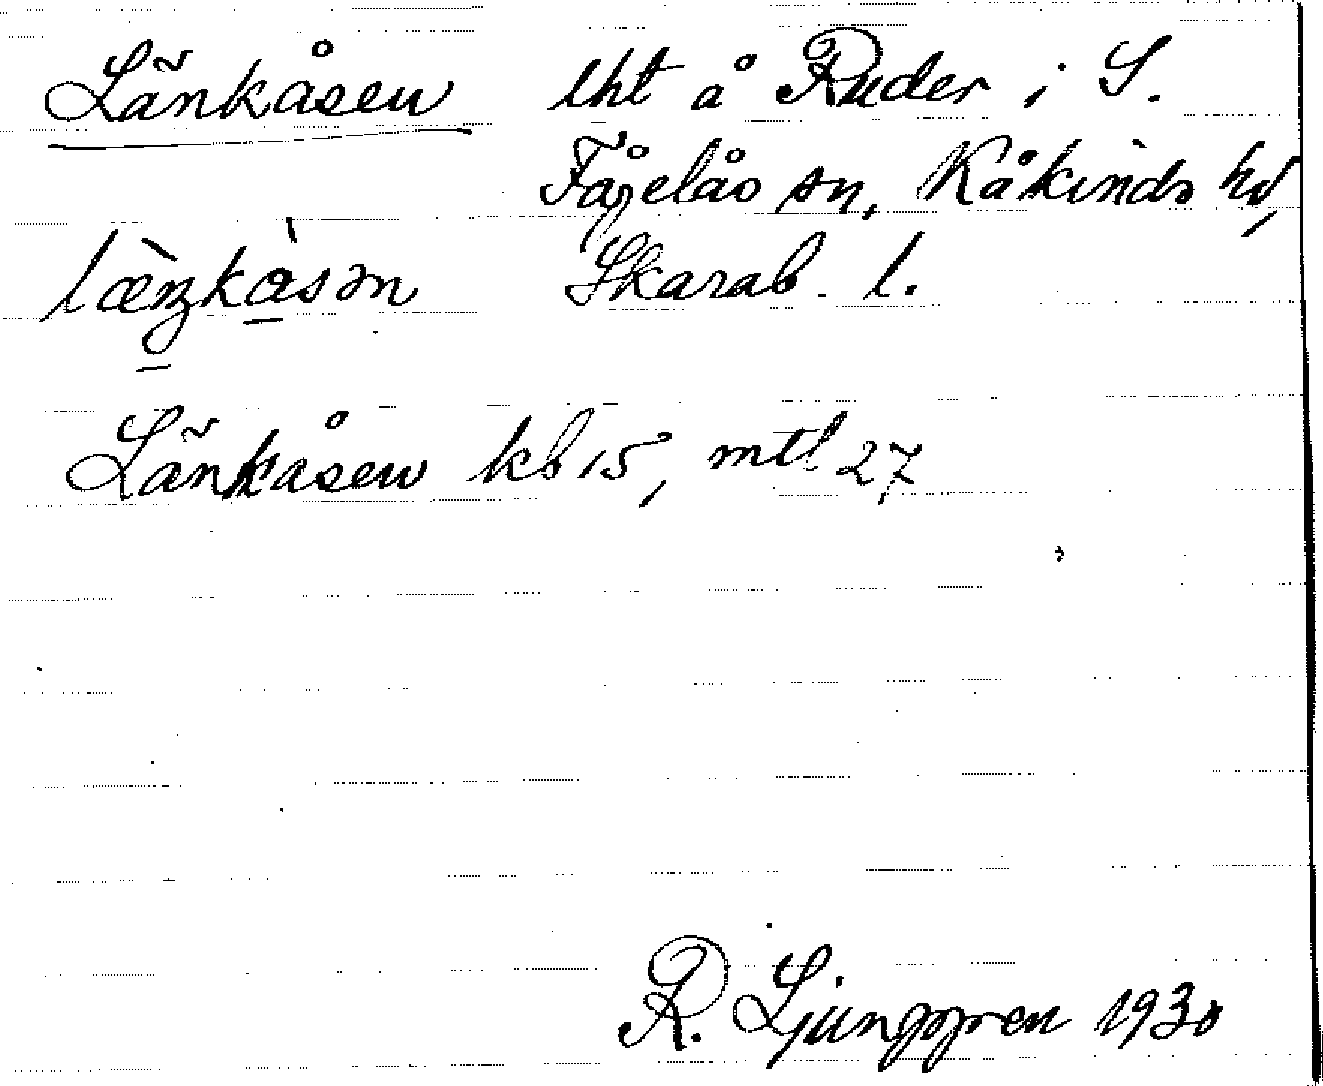 Länkåsen lht å Ruder i S.
Fågelås sn, Kåkinds hd,
Skarab. l.
Länkåsen kb 15, mtl 27
R. Ljunggren 1930